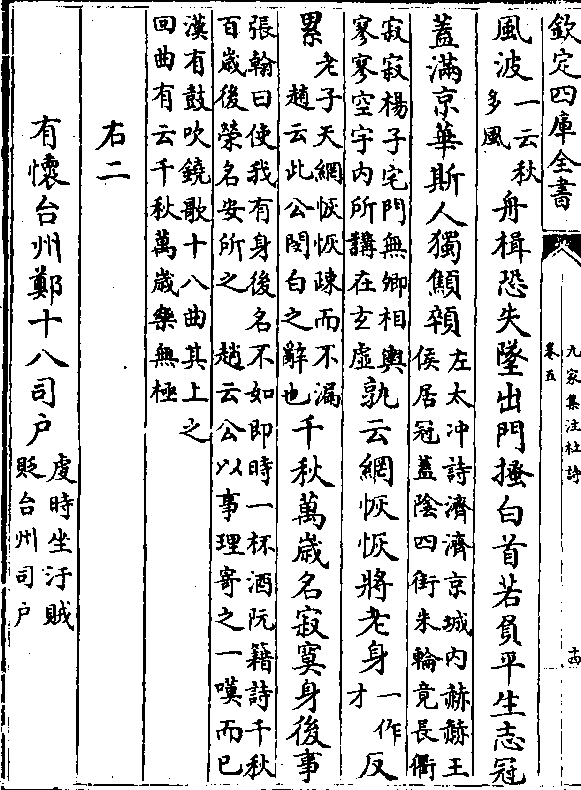 欽定四庫全書
九家集注杜詩
卷五
十四
風波一云秋多風舟楫恐失墜出門搔白首若負平生志冠
蓋滿京華斯人獨顦顇左太冲詩濟濟京城内赫赫王侯居冠蓋陰四街朱輪竟長衢
寂寂楊子宅門無卿相輿寥寥空宇内所講在玄虛孰云網恢恢將老身一作才反
累老子天網恢恢疎而不漏趙云此公閔白之辭也千秋萬歲名寂寞身後事
張翰曰使我有身後名不如即時一杯酒阮籍詩千秋百歲後榮名安所之 趙云公以事理寄之一嘆而已
漢有鼓吹鐃歌十八曲其上之回曲有云千秋萬歲樂無極
右二
有懷台州鄭十八司户虔時坐汙賊貶台州司户